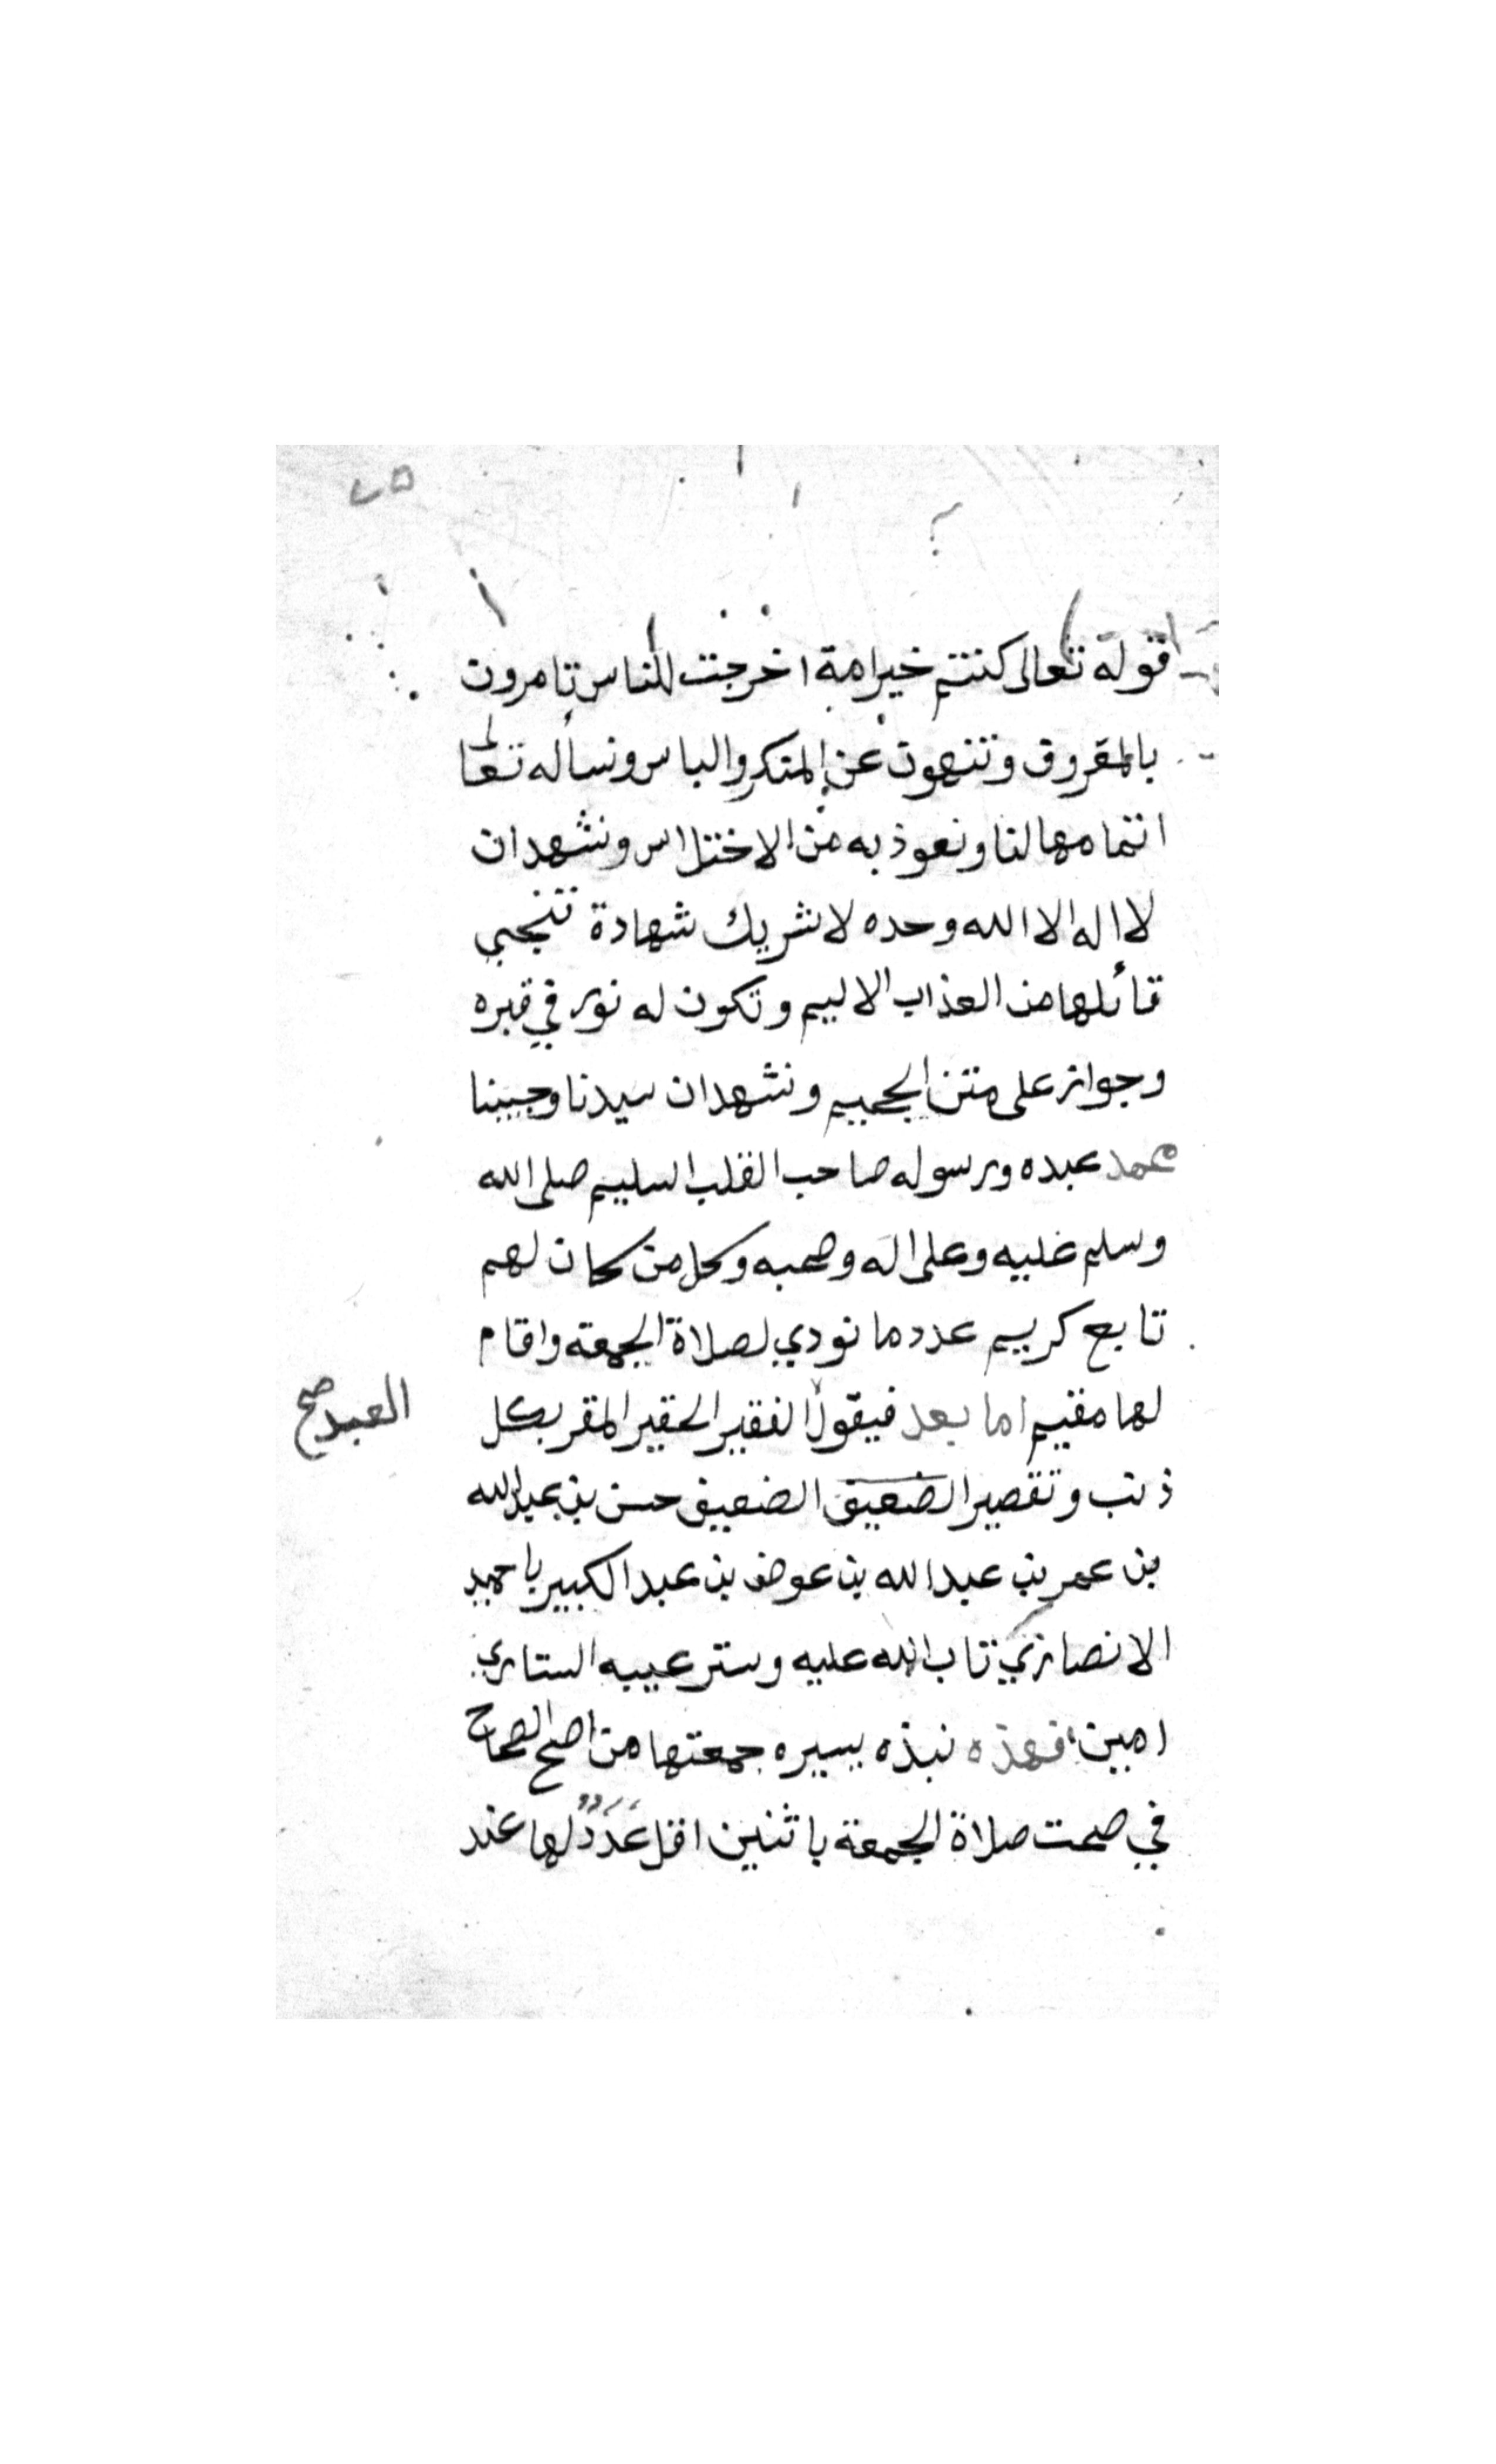 قوله تعالى كنتم خير امة اخرجت للناس تامرون
بالمعروف وتنهون عن المنكر والباس ونساله تعالى
اتمامها لنا ونعوذ به من الاختلاس ونشهد ان
لا اله الا الله وحده لا شريك شهادة تنجي
قائلها من العذاب الاليم وتكون له نور في قبره
وجواز على متن الجحيم ونشهد ان سيدنا وحبيبنا
محمد عبده ورسوله صاحب القلب السليم صلى الله
وسلم عليه وعلى اله وصحبه وكل من كان لهم
تابع كريم عدد ما نودي لصلاة الجمعة واقام
لها مقيم اما بعد فيقول الفقير الحقير المقر بكل
العبد صح
ذنب وتقصير الضعيف الضعيف حسن بن عبدالله
بن عمر بن عبدالله بن عوض بن عبد الكبير باحميد
الانصاري تاب الله عليه وستر عيبه الساري
امين فهذه نبذه يسيره جمعتها من اصح الصحاح
في صحت صلاة الجمعة باثنين اقل عَدَدٌ لها عند